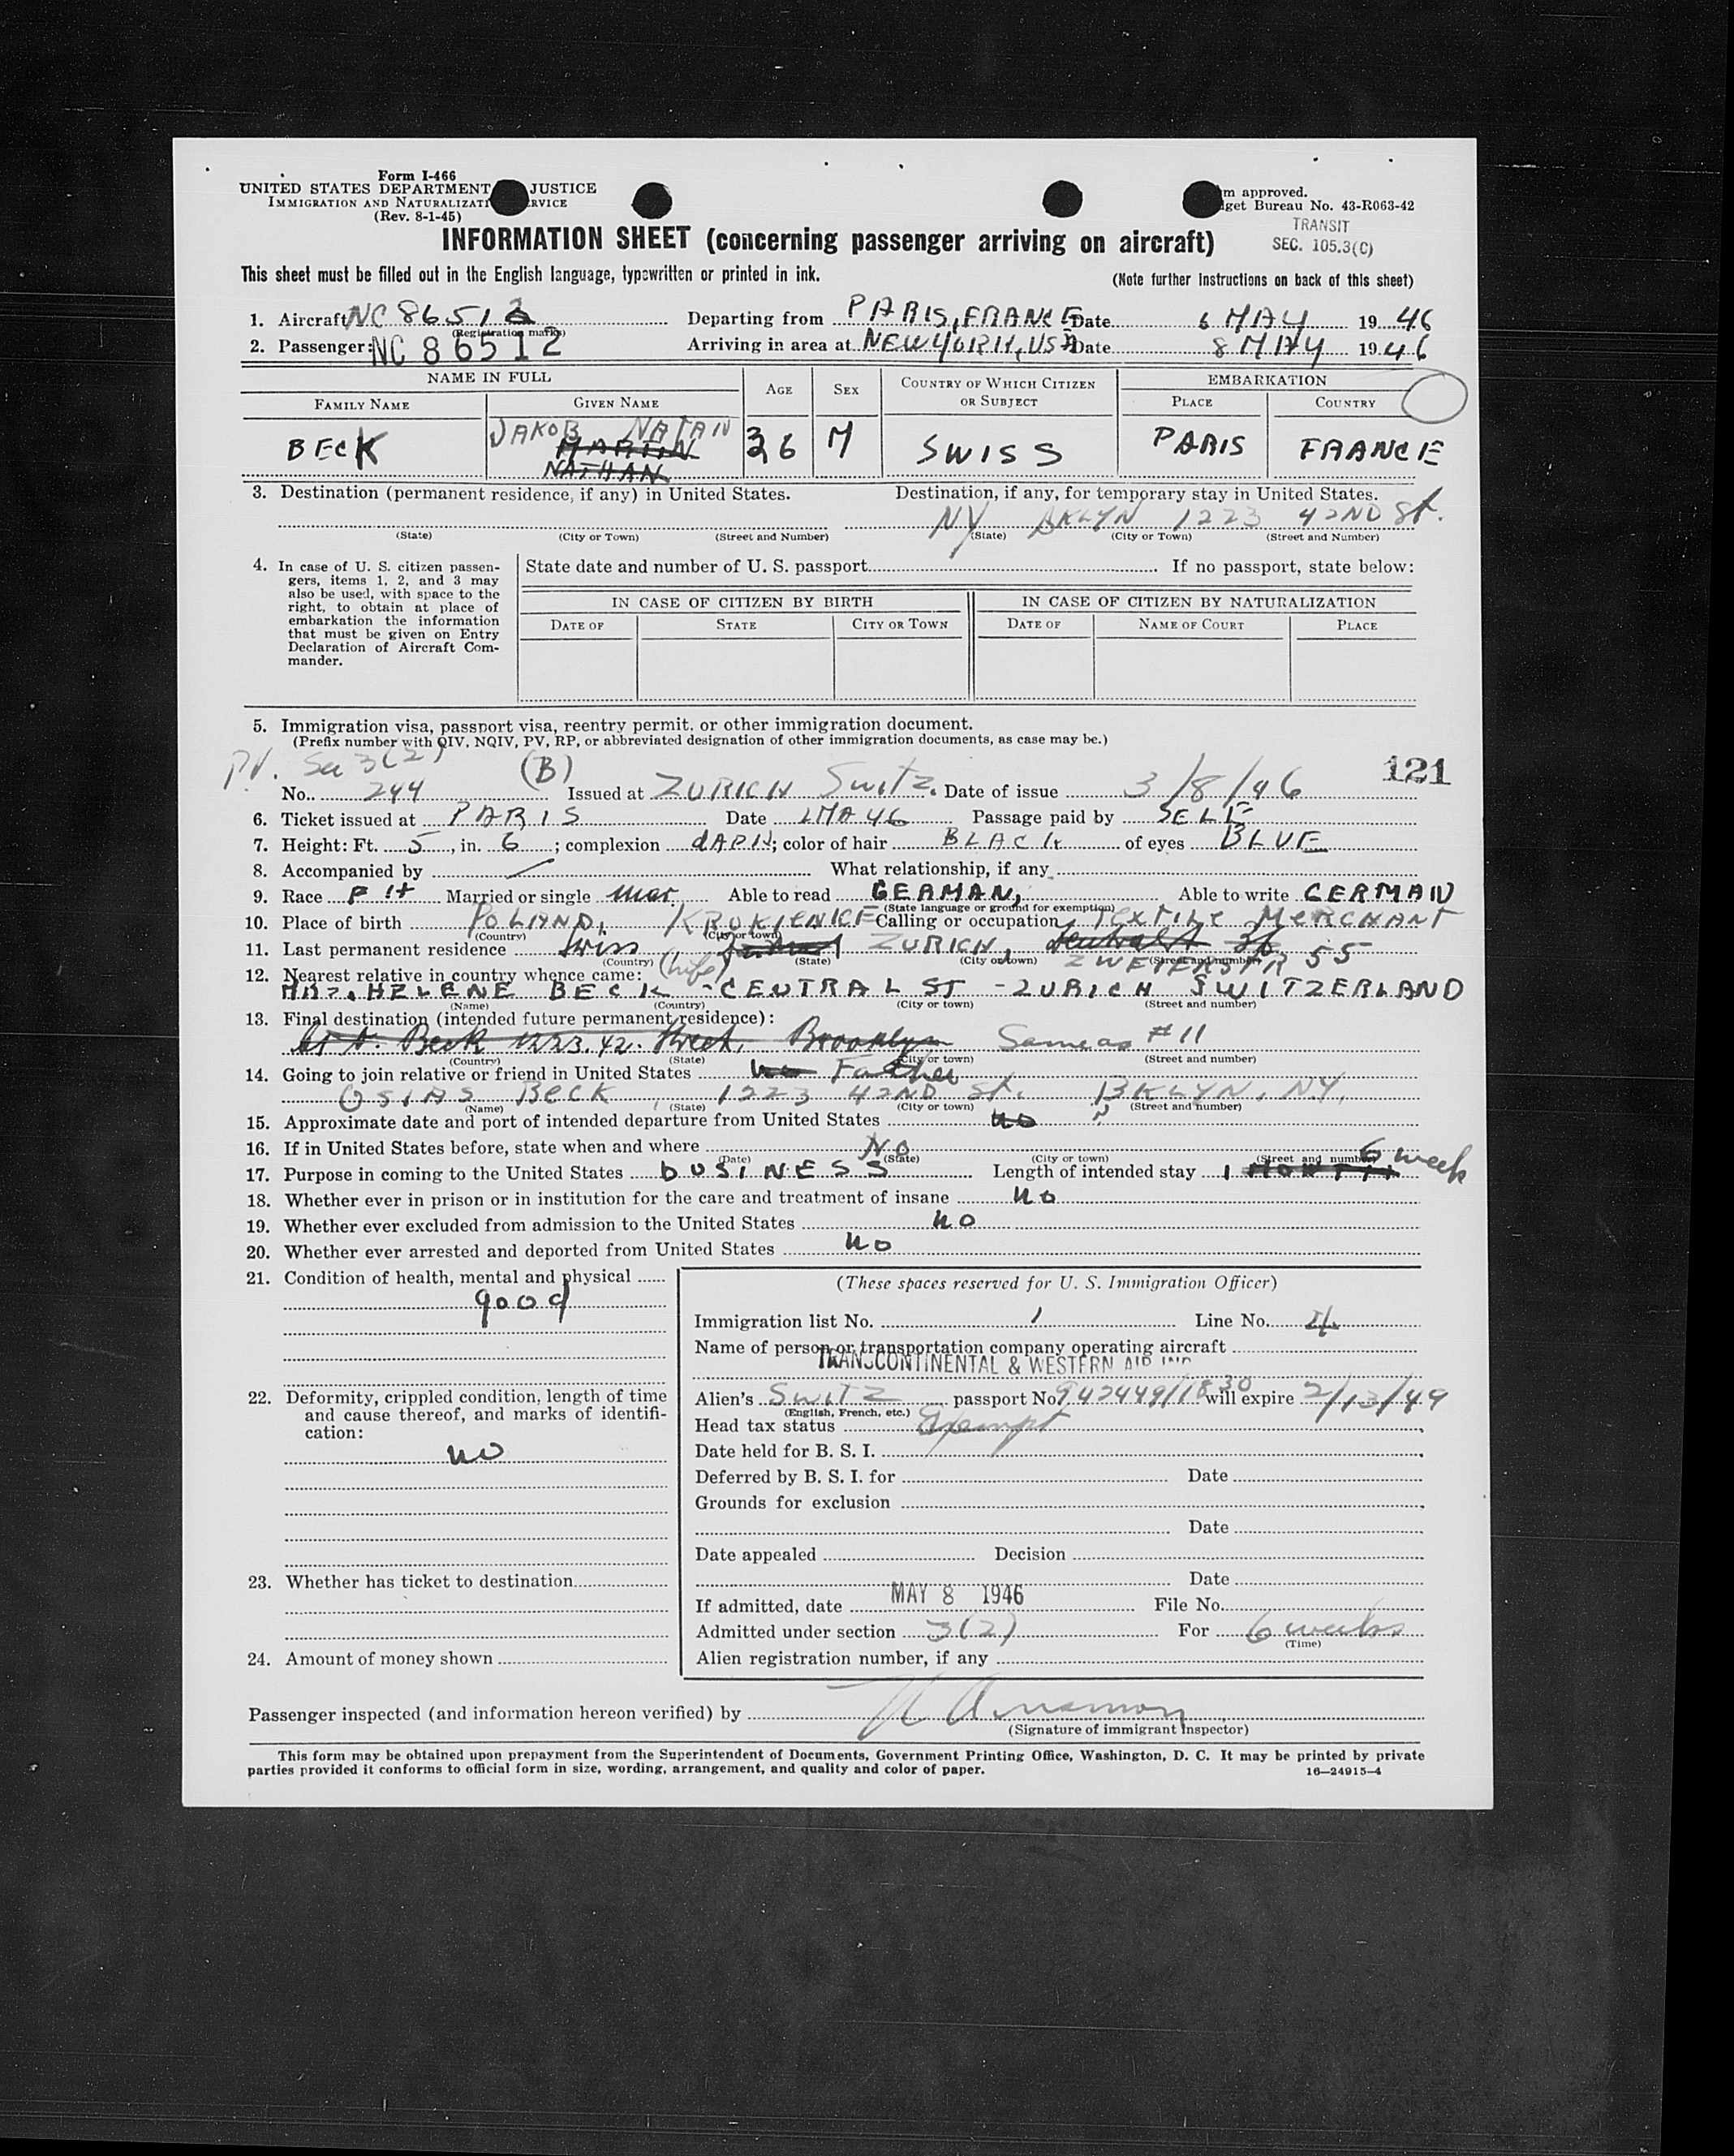 Form I-466
UNITED STATES DEPARTMENT JUSTICE
IMMIGRATION AND NATURALIZATI RVICE
(Rev. 8-1-45)
m approved.
get Bureau No. 43-R063-42
TRANSIT
SEC. 105.3(C)
INFORMATION SHEET (concerning passenger arriving on aircraft)
This sheet must be filled out in the English language, typewritten or printed in ink. (Note further instructions on back of this sheet)
1. Aircraft NC 86512 Departing from PARIS, FRANCE Date 6 MAY 1946
(Registration marks)
2. Passenger: NC 86512 Arriving in area at NEW YORK, USA Date 8 MAY 1946
NAME IN FULL AGE SEX COUNTRY OF WHICH CITIZEN OR SUBJECT EMBARKATION
FAMILY NAME GIVEN NAME PLACE COUNTRY
JAKOB NATAN
BECK MARTIN 36 M SWISS PARIS FRANCE
NATHAN
3. Destination (permanent residence, if any) in United States. Destination, if any, for temporary stay in United States.
NY BKLYN 1223 42ND St.
(State) (City or Town) (Street and Number) (State) (City or Town) (Street and Number)
4. In case of U. S. citizen passengers, items 1, 2, and 3 may also be used, with space to the right, to obtain at place of embarkation the information that must be given on Entry Declaration of Aircraft Commander.
State date and number of U. S. passport If no passport, state below:
IN CASE OF CITIZEN BY BIRTH IN CASE OF CITIZEN BY NATURALIZATION
DATE OF STATE CITY OR TOWN DATE OF NAME OF COURT PLACE
5. Immigration visa, passport visa, reentry permit, or other immigration document.
(Prefix number with QIV, NQIV, PV, RP, or abbreviated designation of other immigration documents, as case may be.)
PV. Sec 3(2) (B) 121
No. 244 Issued at ZURICH Switz. Date of issue 3/8/46
6. Ticket issued at PARIS Date 2 MA 46 Passage paid by SELF
7. Height: Ft. 5, in. 6; complexion dARK; color of hair BLACK of eyes BLUE
8. Accompanied by What relationship, if any
9. Race Married or single mar. Able to read GERMAN, Able to write GERMAN
(State language or ground for exemption)
10. Place of birth POLAND, KRUKIENICE Calling or occupation TEXTILE MERCHANT
(Country) (City or town)
11. Last permanent residence Swiss ZURICH, 55
(Country) (State) (City or town) (Street and number)
ZWEIERSTR
12. Nearest relative in country whence came: (wife)
MRS. HELENE BECK - CENTRAL ST - ZURICH SWITZERLAND
(Name) (Country) (City or town) (Street and number)
13. Final destination (intended future permanent residence):
Beck 1223. 42. Street, Brooklyn Same as #11
(Country) (State) (City or town) (Street and number)
14. Going to join relative or friend in United States no Father
OSIAS BECK 1223 42ND St. BKLYN, N.Y.
(Name) (State) (City or town) (Street and number)
15. Approximate date and port of intended departure from United States no
16. If in United States before, state when and where NO
(Date) (State) (City or town) (Street and number)
6 week
17. Purpose in coming to the United States BUSINESS Length of intended stay 1 MONTH
18. Whether ever in prison or in institution for the care and treatment of insane no
19. Whether ever excluded from admission to the United States no
20. Whether ever arrested and deported from United States no
21. Condition of health, mental and physical
good
22. Deformity, crippled condition, length of time and cause thereof, and marks of identification:
no
23. Whether has ticket to destination
24. Amount of money shown
(These spaces reserved for U. S. Immigration Officer)
Immigration list No. 1 Line No. 4
Name of person or transportation company operating aircraft
TRANSCONTINENTAL & WESTERN AIR INC
Alien's Switz passport No. 942449/1830 will expire 2/13/49
(English, French, etc.)
Head tax status Exempt
Date held for B. S. I.
Deferred by B. S. I. for Date
Grounds for exclusion
Date
Date appealed Decision
Date
If admitted, date MAY 8 1946 File No.
Admitted under section 3(2) For 6 weeks
(Time)
Alien registration number, if any
Passenger inspected (and information hereon verified) by
(Signature of immigrant Inspector)
This form may be obtained upon prepayment from the Superintendent of Documents, Government Printing Office, Washington, D. C. It may be printed by private
parties provided it conforms to official form in size, wording, arrangement, and quality and color of paper. 16—24915-4